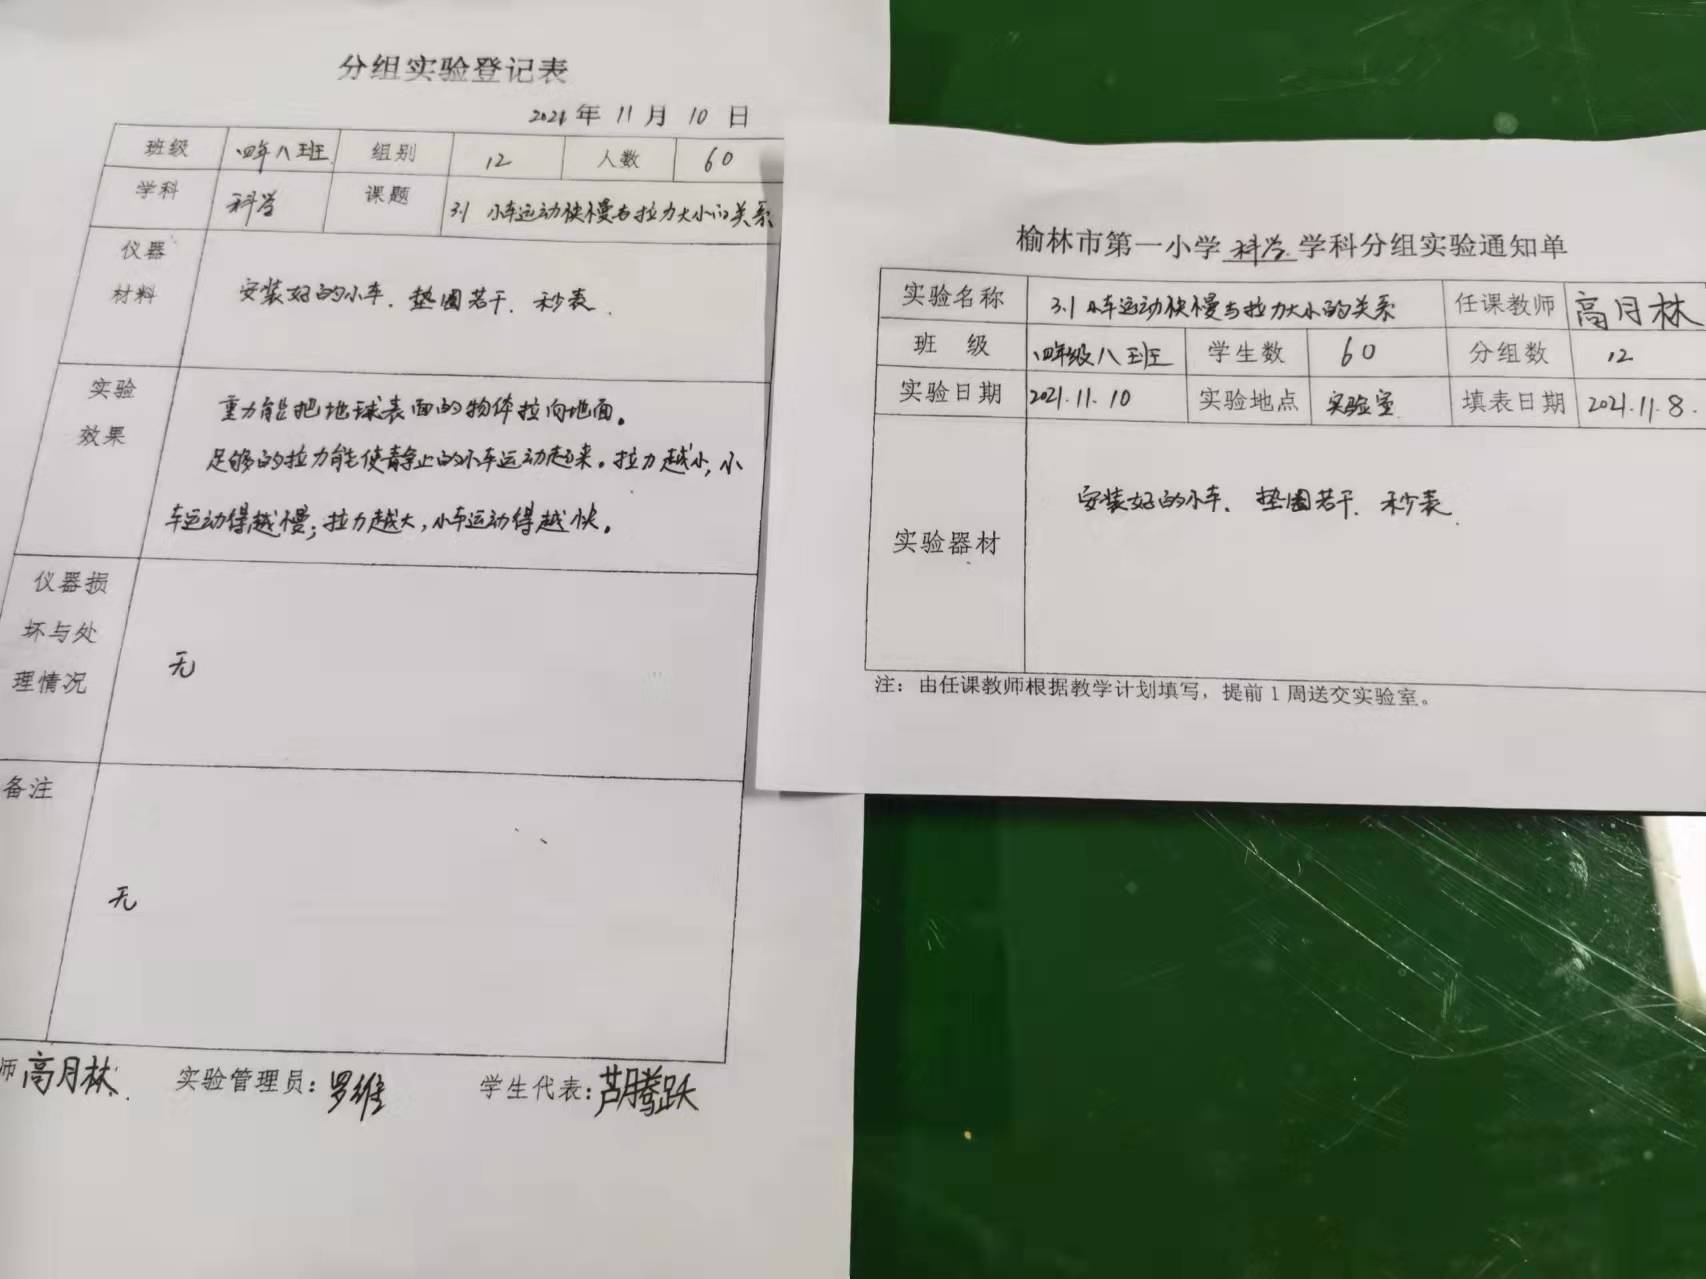 分组实验登记表
2021年 11月 10日
班级 四年八班 组别 12 人数 60
学科 科学 课题 3.1 小车运动快慢与拉力大小的关系
仪器
材料
安装好的小车、垫圈若干、秒表.
实验
效果
重力能把地球表面的物体拉向地面。
足够的拉力能使静止的小车运动起来。拉力越小,小
车运动得越慢;拉力越大,小车运动得越快。
仪器损
坏与处
理情况
无
备注
无
师 高月林. 实验管理员:罗维 学生代表:芦腾跃
榆林市第一小学 科学 学科分组实验通知单
实验名称 3.1 小车运动快慢与拉力大小的关系 任课教师 高月林
班 级 四年级八班 学生数 60 分组数 12
实验日期 2021.11.10 实验地点 实验室 填表日期 2021.11.8.
实验器材
安装好的小车、垫圈若干、秒表.
注:由任课教师根据教学计划填写,提前1周送交实验室。